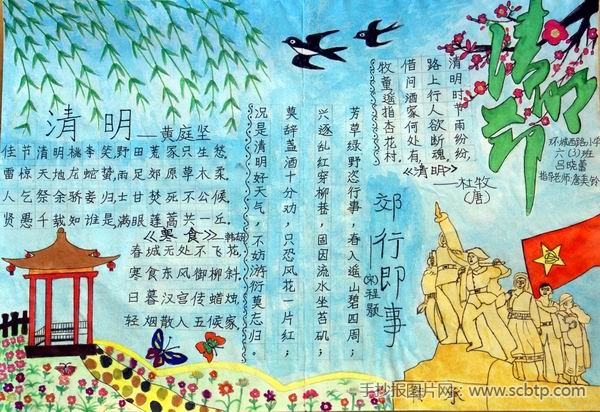 清明节
环城西路小学
六(3)班
吕晓蕾
指导老师:唐美铃
清明时节雨纷纷,
路上行人欲断魂。
借问酒家何处有,
牧童遥指杏花村。
《清明》
—杜牧
(唐)
清明——黄庭坚
佳节清明桃李笑,野田荒冢只生愁。
雷惊天地龙蛇蛰,雨足郊原草木柔。
人乞祭余骄妾妇,士甘焚死不公候。
贤愚千载知谁是,满眼蓬蒿共一丘。
《寒食》——韩翃
春城无处不飞花,
寒食东风御柳斜。
日暮汉宫传蜡烛,
轻烟散入五候家。
郊行即事
(宋)程颢
芳草绿野恣行事,春入遥山碧四周;
兴逐乱红穿柳巷,固因流水坐苔矶;
莫辞盏酒十分劝,只恐风花一片红;
况是清明好天气,不妨游衍莫忘归。
手抄报图片网:www.scbtp.com